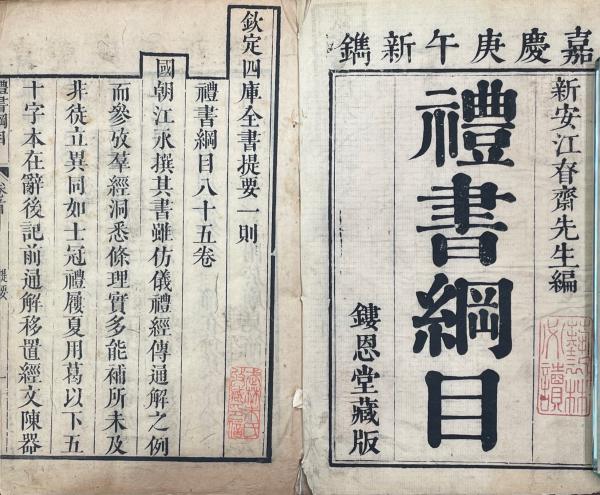 嘉慶庚午新鐫
新安江眘齋先生編
禮書綱目
鏤恩堂藏版
欽定四庫全書提要一則
禮書綱目八十五卷
國朝江永撰其書雖仿儀禮經傳通解之例
而參攷羣經洞悉條理實多能補所未及
非徒立異同如士冠禮屨夏用葛以下五
十字本在辭後記前通解移置經文陳器
禮書綱目
卷首
提要
一